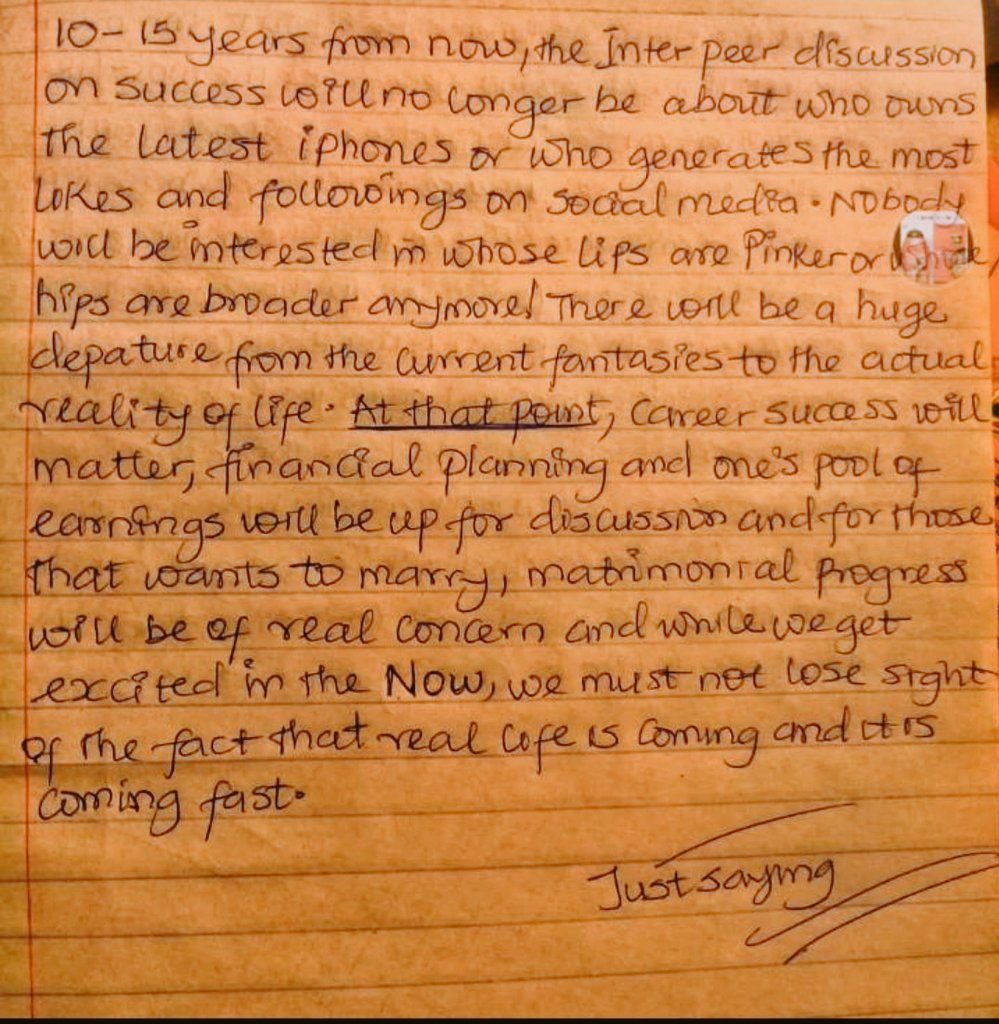 10-15 years from now, the Inter peer discussion
on success will no longer be about who owns
the latest iphones or who generates the most
likes and followings on social media. Nobody
will be interested in whose lips are Pinker or
hips are broader anymore! There will be a huge
depature from the current fantasies to the actual
reality of life. At that point, career success will
matter, financial planning and one's pool of
earnings will be up for discussion and for those
that wants to marry, matrimonial progress
will be of real concern and while we get
excited in the Now, we must not lose sight
of the fact that real life is coming and it is
coming fast.
Just saying